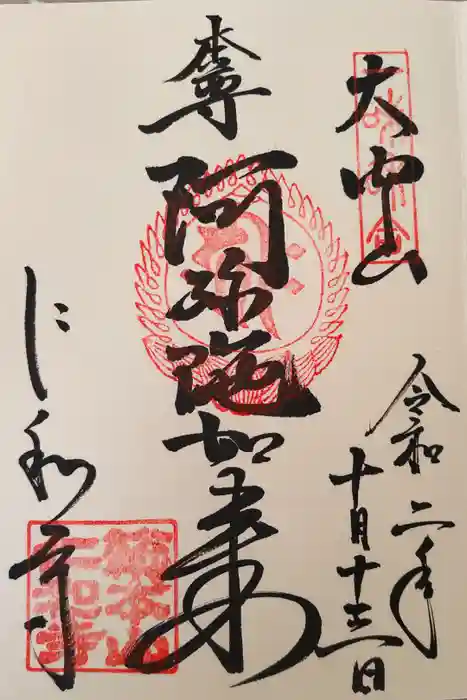 大内山
令和二年
十月十三日
本尊
阿弥陀如来
仁和寺
総本山
仁和寺